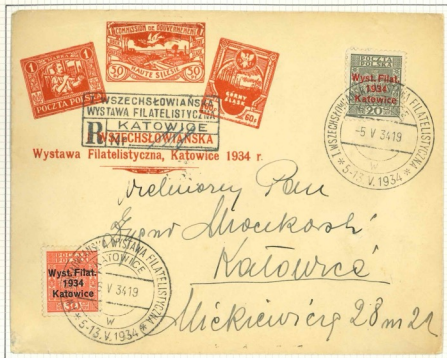 MARKA 1
POCZTA POLSKA
COMMISSION DE GOUVERNEMENT
50 50
HAUTE SILÉSIE
60 f.
WSZECHSŁOWIAŃSKA
WYSTAWA FILATELISTYCZNA
KATOWICE
R No
WSZECHSŁOWIAŃSKA
Wystawa Filatelistyczna, Katowice 1934 r.
POCZTA POLSKA
Wyst. Filat.
1934
Katowice
20
I WSZECHSŁOWIAŃSKA WYSTAWA FILATELISTYCZNA
-5 V 34 19
w
* 5-13.V.1934 *
Wielmożny Pan
Mroczkowski
Katowice
Mickiewicza 28 m 21
Wyst. Filat.
1934
Katowice
30
WYSTAWA FILATELISTYCZNA
KATOWICE
V 34 19
w
* 5-13.V.1934 *